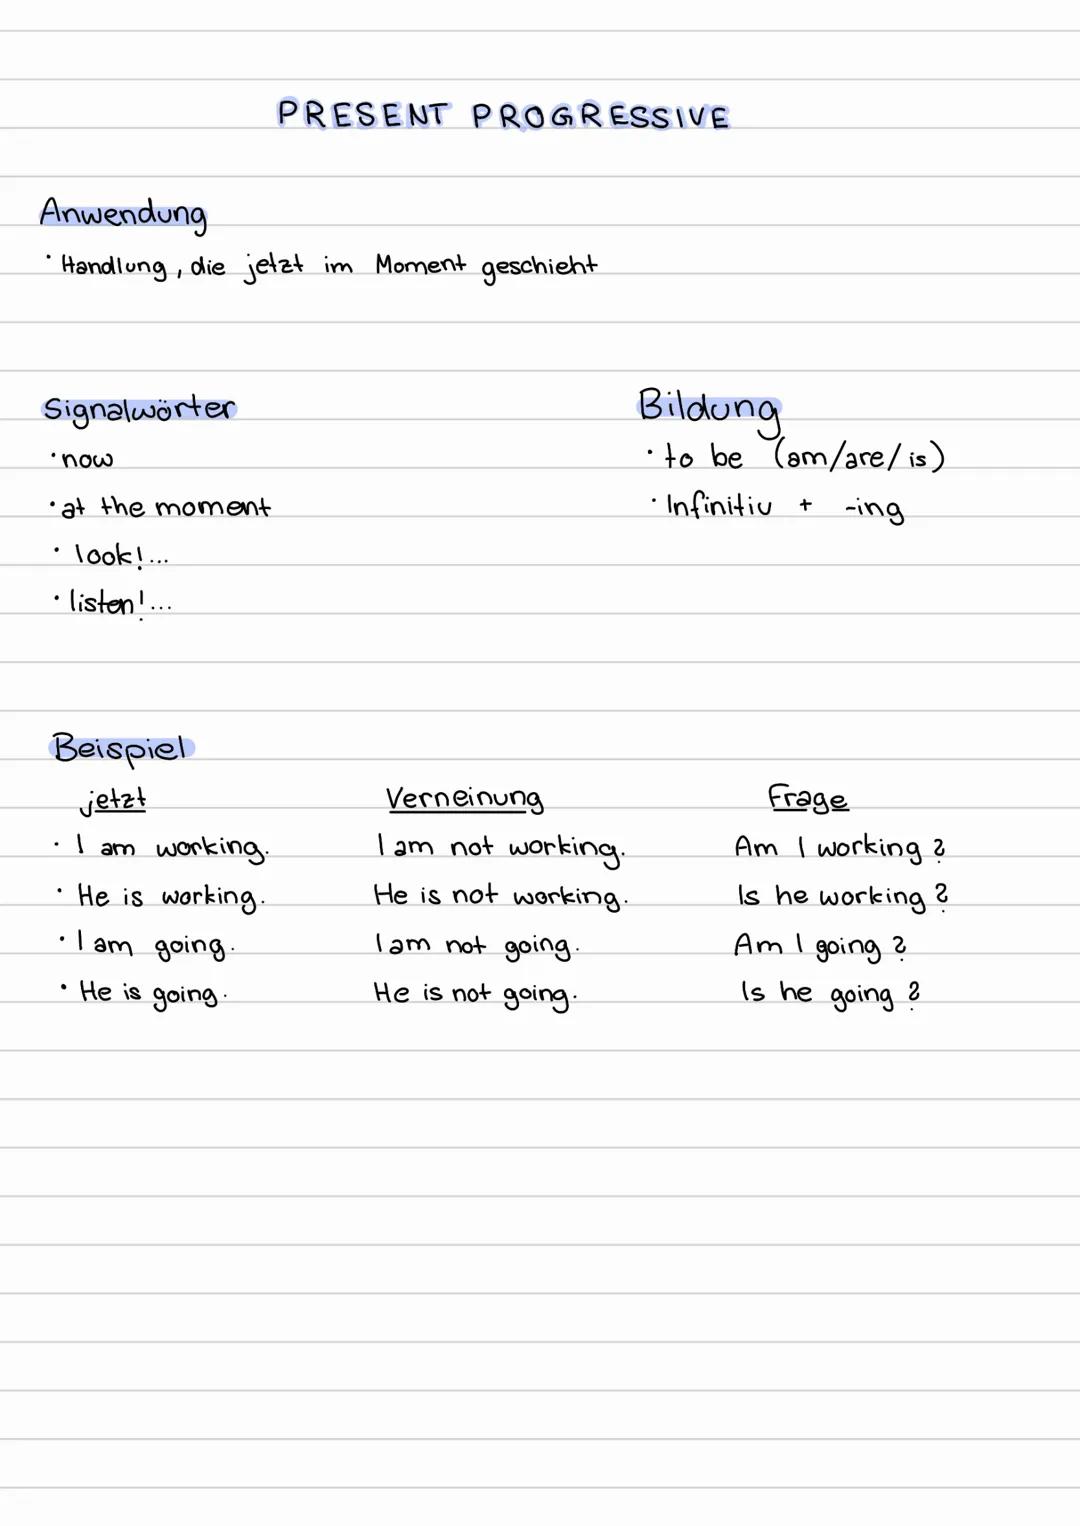 PRESENT PROGRESSIVE
Anwendung
· Handlung, die jetzt im Moment geschieht
Signalwörter
· now
· at the moment
· look!...
· listen!...
Bildung
· to be (am/are/is)
· Infinitiv + -ing
Beispiel
jetzt Verneinung Frage
· I am working. I am not working. Am I working?
· He is working. He is not working. Is he working?
· I am going. I am not going. Am I going?
· He is going. He is not going. Is he going?